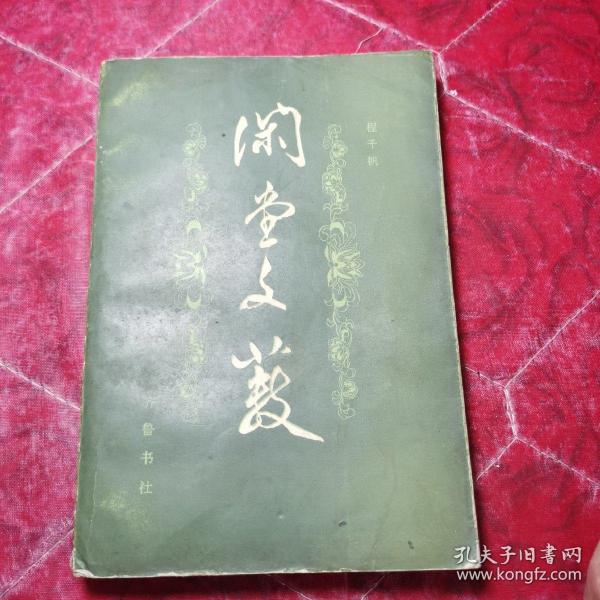 程千帆
闲堂文薮
鲁书社
孔夫子旧书网
www.kongfz.com